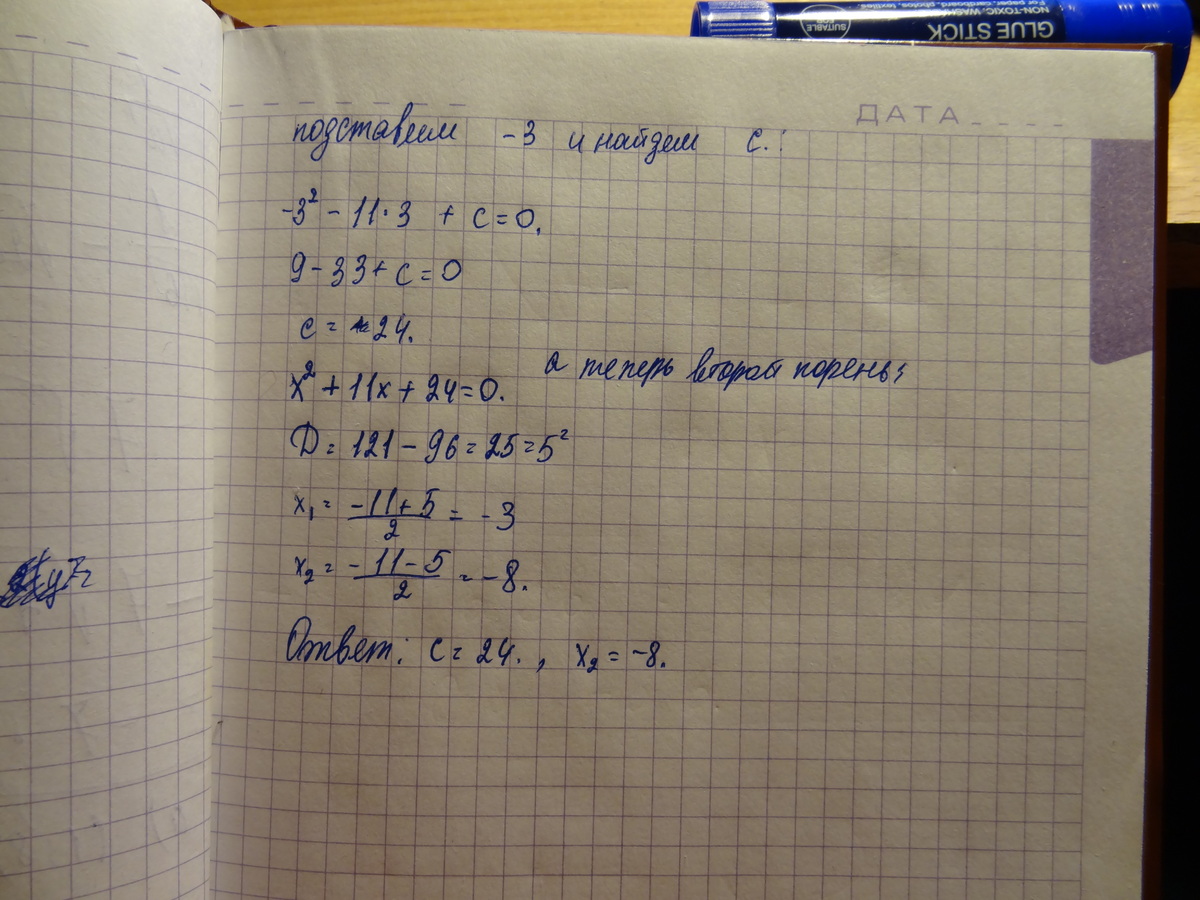 GLUE STICK
NON-TOXIC, WASHABLE
For paper, cardboard, photos, textiles,
SUITABLE FOR
ДАТА
подставим -3 и найдем с.:
-3² - 11·3 + c = 0.
9 - 33 + c = 0
c = 24.
x² + 11x + 24 = 0. а теперь второй корень:
D = 121 - 96 = 25 = 5²
x₁ = (-11+5)/2 = -3
x₂ = (-11-5)/2 = -8.
Ответ: c = 24. , x₂ = -8.